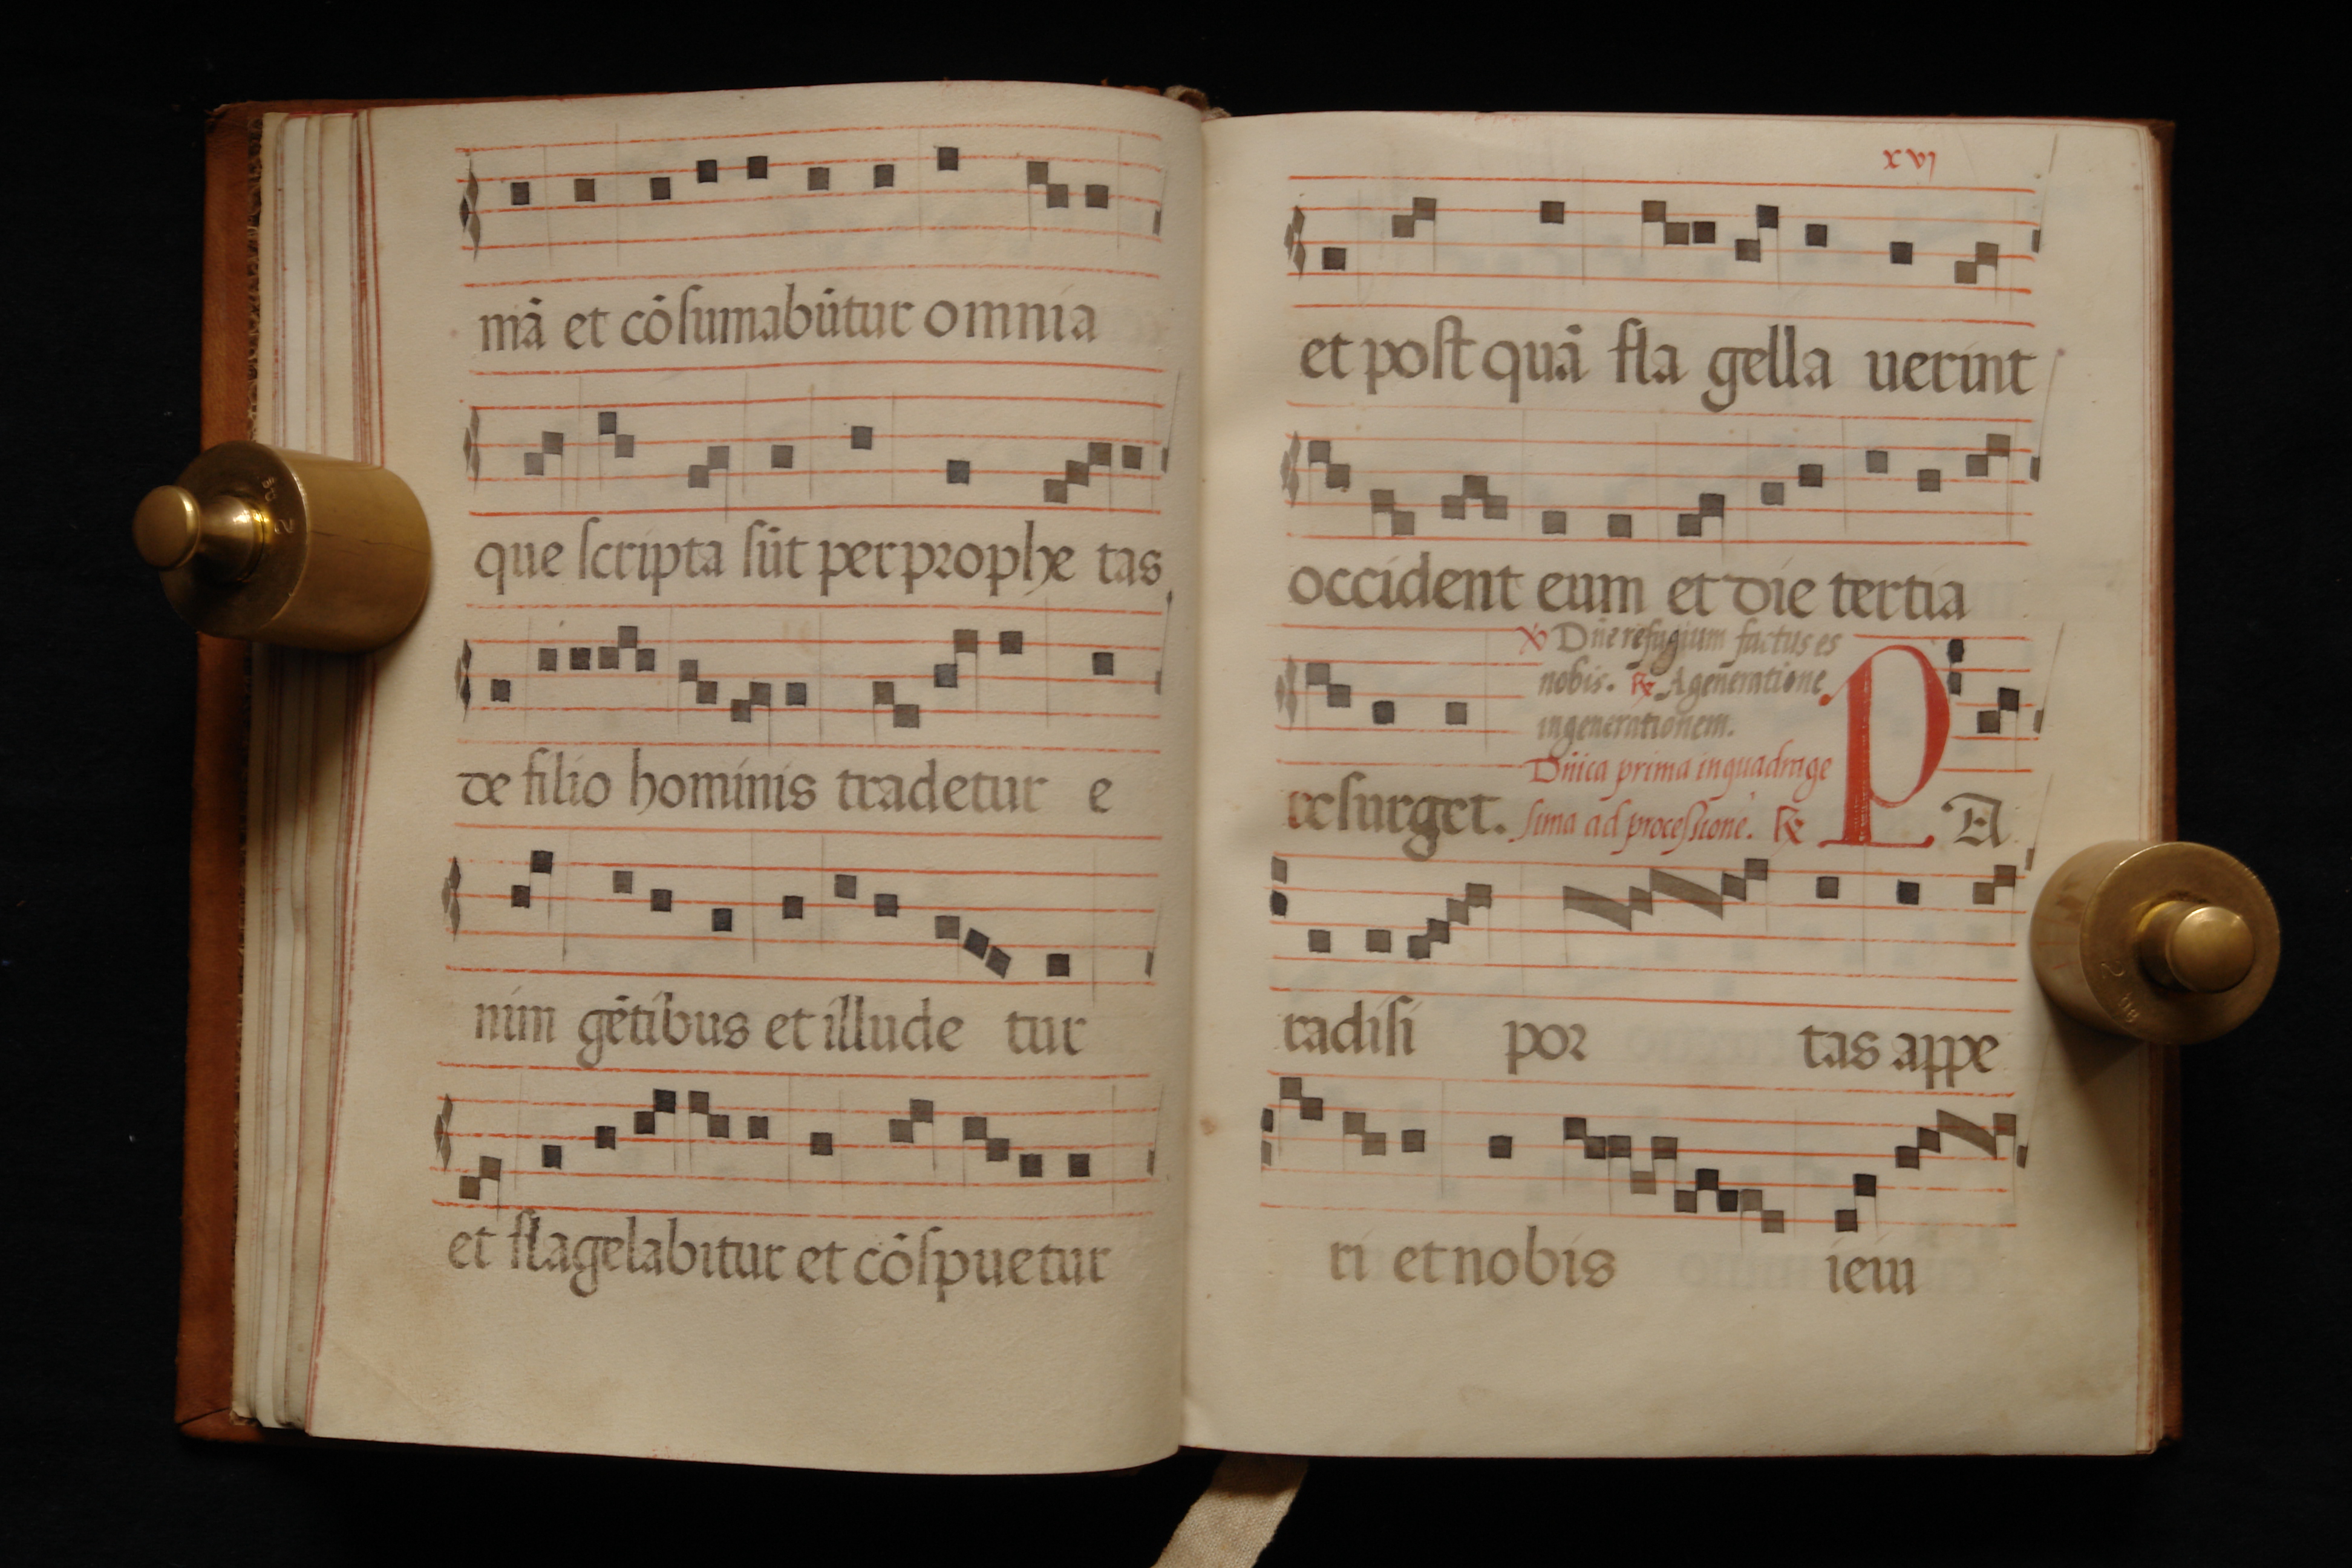 mā et cōſumabūtur omnia
que ſcripta ſūt per prophe tas
de filio hominis tradetur e
nim gētibus et illude tur
et flagelabitur et cōſpuetur
xvj
et poſt quā fla gella uerint
occident eum et die tertia
℣ Dn̄e refugium factus es
nobis. ℟ A generatione
in generationem.
reſurget.
Dn̄ica prima in quadrage
ſima ad proceſſionē. ℟
PA
radiſi por tas appe
ri et nobis ieiu